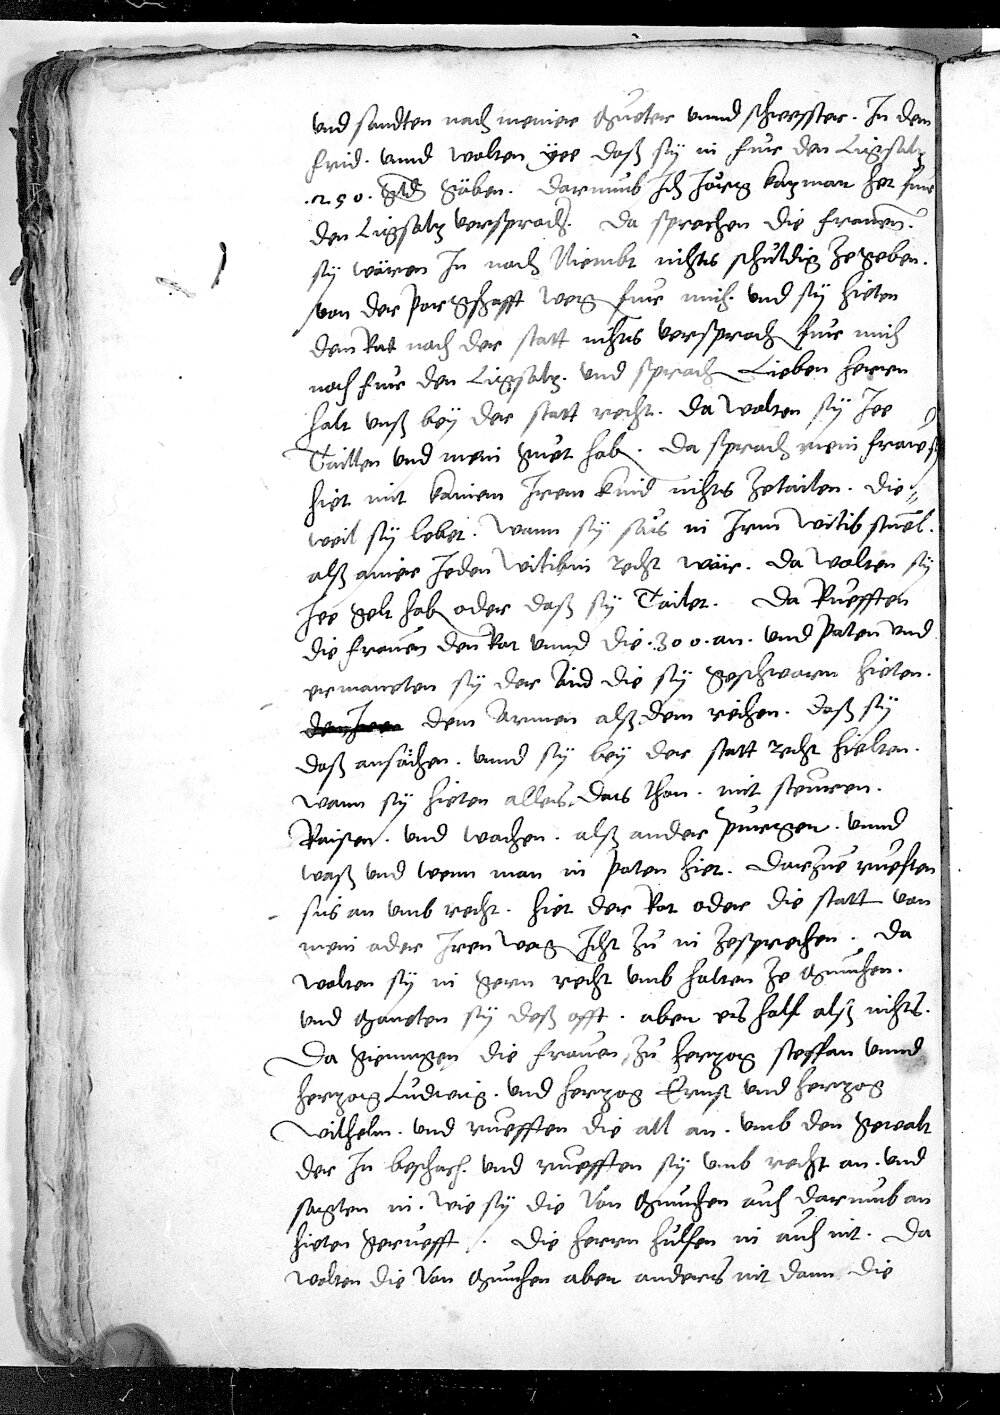 und sandten nach meiner Mueter unnd schwesster. In dem
frid. unnd wolten yee daß sy in fur den Ligsaltz
.250. gld gäben. Darumb Ich Jörg katzmair het fur
den Ligsaltz versproch. Da sprachen die frauen.
sy wären In noch Niembt nichts schuldig ze geben.
von der Porgschafft weg fur mich. und sy hieten
dem Rat noch der statt nichts versproch fur mich
noch fur den Ligsaltz. und sprach Lieben herren
halt unß bey der statt recht. da wolten sy Jee
Taillen und mein guet hab. Da sprach mein fraw sy
hiet mit kainem Irem kind nichts zetailen. Die=
weil sy lebet. wann sy säs in Irm witib stuel.
alß ainer Jeden witibin recht wär. da wolten sy
Jee gelt hab oder daß sy Tailet. Da Ruefften
die frauen den Rat unnd die .300. an. und paten und
ermaneten sy der Aid die sy geschwarn hieten.
dem Armen alß dem reichen. daß sy
daß ansächen. unnd sy bey der statt recht hielten.
wann sy hieten alles das than. mit steuren.
Raisen. und wachen. alß ander purger. unnd
waß und wenn man in paten hiet. Darzue rueften
sis an umb recht. hiet der Rat oder die statt von
mein oder Iren weg Icht zu in zesprechen. Da
wolten sy in gern recht umb halten ze Munchen.
und Maneten sy deß offt. aber es half alß nichts.
Da giengen die frauen zu hertzog steffan unnd
hertzog Ludwig. und hertzog Ernst und hertzog
wilhelm. und ruefften die all an. umb den gewalt
der In beschach. und ruefften sy umb recht an. und
sagten in. wie sy die von Munchen auch darumb an
hieten geruefft. Die herrn hulfen in auch nit. Da
wolten die von Munchen aber anders nit dann die